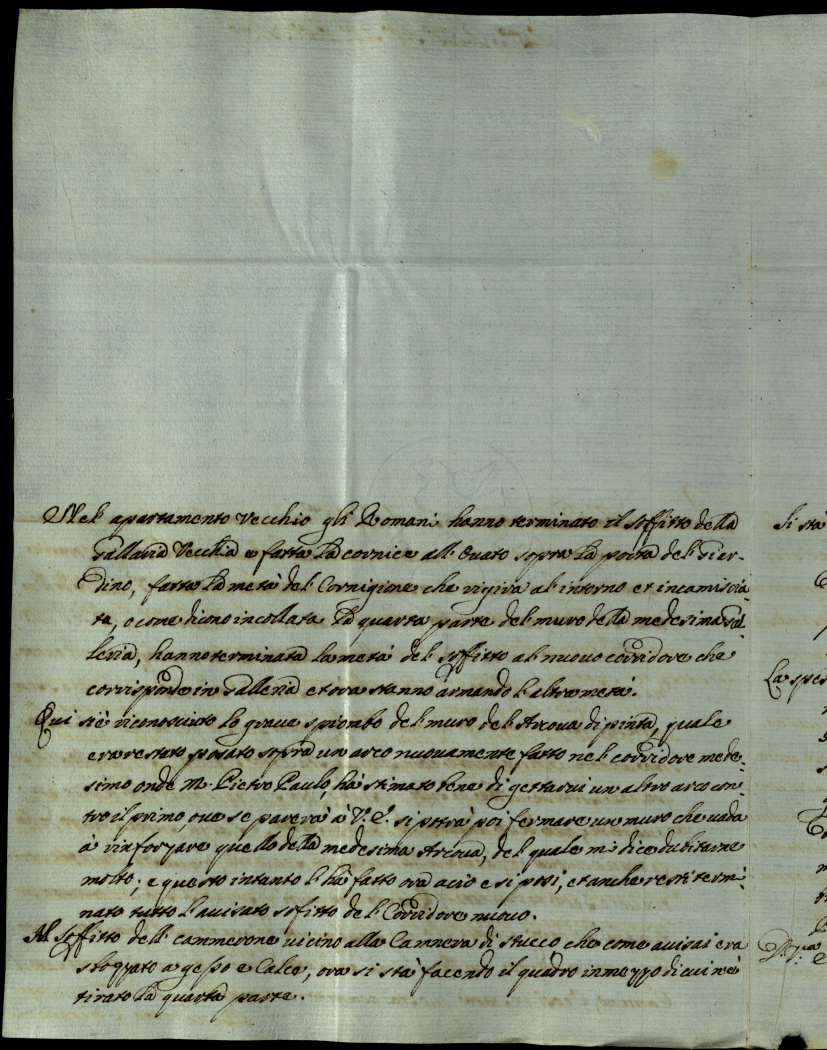 Nel apartamento vecchio gli Romani hanno terminato il soffitto della
Gallaria Vecchia e fatta la cornice all'ouato sopra la porta del Giar-
dino, fatta la metà del Cornigione che rigira al intorno et incamiscia-
ta, o come dicono incollata la quarta parte del muro della medesima Gal-
leria, hanno terminata la metà del soffitto al nuouo corridore che
corrisponde in Galleria et ora stanno armando l'altra metà.
Qui si è riconosciuto lo graue spiombo del muro del Arcoua dipinta, quale
era restato posato sopra un arco nuouamente fatto nel corridore mede-
simo onde M. Pietro Paulo, ha stimato bene di gettarui un altro arco con-
tro il primo, oue se parerà à V. E. si potrà poi fermare un muro che uada
à rinforzare quello della medesima Arcoua, del quale mi dice dubitarne
molto; e questo intanto l'hà fatto ora acio e si posi, et anche resti termi-
nato tutto l'auisato sofitto del Corridore nuouo.
Al Soffitto dell cammerone uicino alla Camnera di stucco che come auisai era
sbozzato a gesso e Calce, ora si stà facendo il quadro in mezzo di cui n'è
tirato la quarta parte.
Si stà
La spes